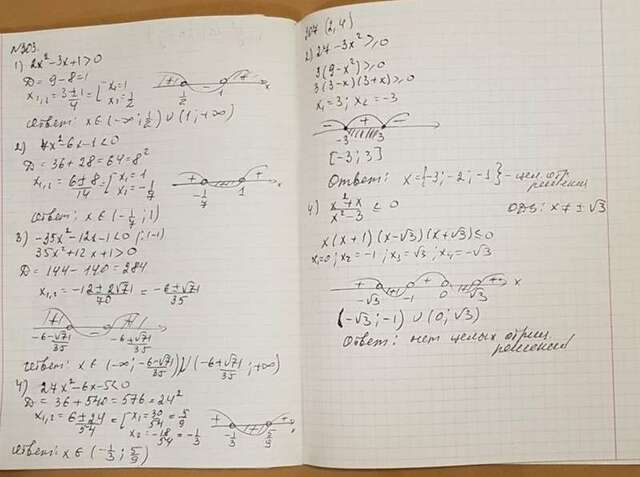 N303.
1) 2x²-3x+1>0
D=9-8=1
x₁,₂=3±1/4=[x₁=1 x₂=1/2
+ - + 1/2 1 x
Ответ: x∈(-∞;1/2)∪(1;+∞)
2) 7x²-6x-1<0
D=36+28=64=8²
x₁,₂=6±8/14=[x₁=1 x₂=-1/7
+ - + -1/7 1 x
Ответ: x∈(-1/7;1)
3) -35x²-12x-1<0 |:(-1)
35x²+12x+1>0
D=144-140=284
x₁,₂=-12±2√71/70=-6±√71/35
+ - + -6-√71/35 -6+√71/35
Ответ: x∈(-∞;-6-√71/35)∪(-6+√71/35;+∞)
4) 27x²-6x-5<0
D=36+540=576=24²
x₁,₂=6±24/54=[x₁=30/54=5/9 x₂=-18/54=-1/3
+ - + -1/3 5/9 x
Ответ: x∈(-1/3;5/9)
304 (2,4)
2) 27-3x²≥0
3(9-x²)≥0
3(3-x)(3+x)≥0
x₁=3; x₂=-3
- + - -3 3
[-3;3]
Ответ: x={-3;-2;-1} - цел. отр. решения
4) x²+x/x²-3≤0 ОДЗ: x≠±√3
x(x+1)(x-√3)(x+√3)≤0
x₁=0; x₂=-1; x₃=√3; x₄=-√3
+ - + - + -√3 -1 0 √3 x
(-√3;-1)∪(0;√3)
Ответ: нет целых отриц. решений